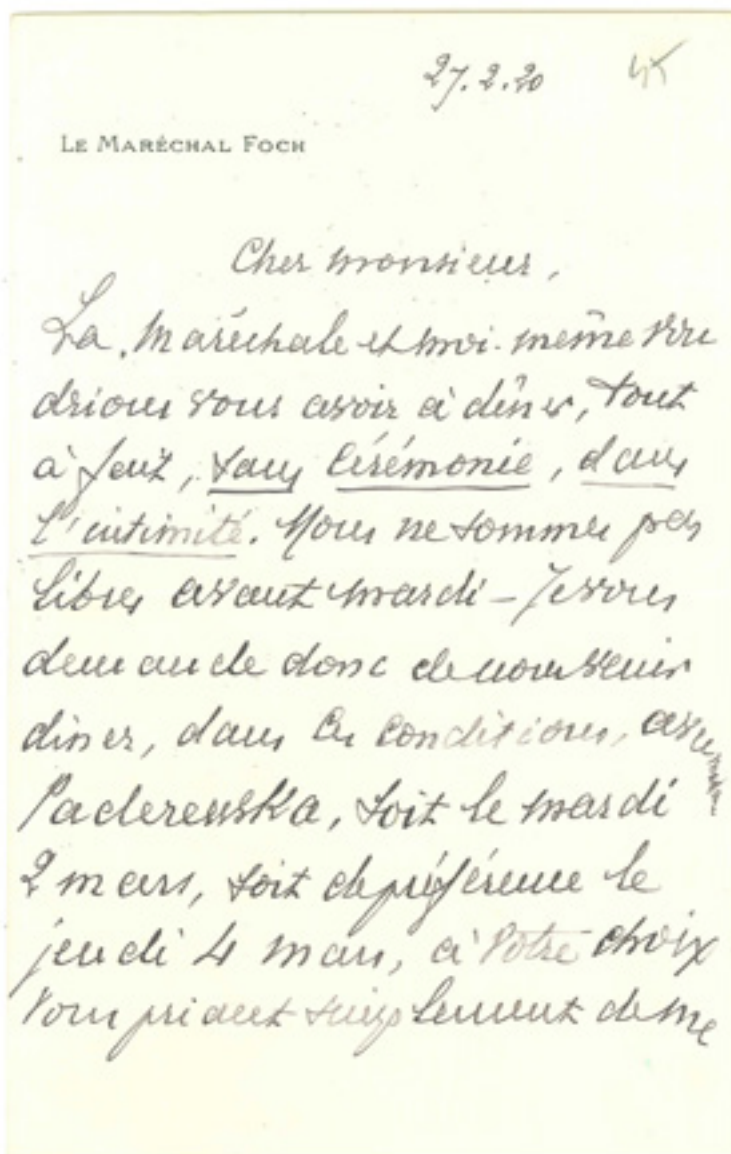 27.2.20
LE MARÉCHAL FOCH
Cher monsieur,
La Maréchale et moi-même vou
drions vous avoir à dîner, tout
à fait, sans cérémonie, dans
l'intimité. Nous ne sommes pas
libres avant mardi - Je vous
demande donc de nous venir
dîner, dans ces conditions, avec
Paderewska, soit le mardi
2 mars, soit de préférence le
jeudi 4 mars, à votre choix
Vous priant simplement de me